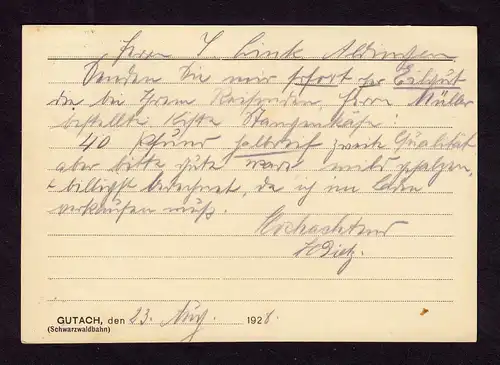 Herrn J. Link Aldingen
Senden Sie mir sofort per Eilgut
die bei Ihrem Reisenden, Herrn Müller
bestellte Kiste Stangenkäse:
40 Pfund halbreif zweite Qualität
aber bitte gute Ware mild gesalzen,
+ billigst berechnet, da ich im Laden
verkaufen muß.
Hochachtend
Dietz.
GUTACH, den 23. Aug. 1928.
(Schwarzwaldbahn)